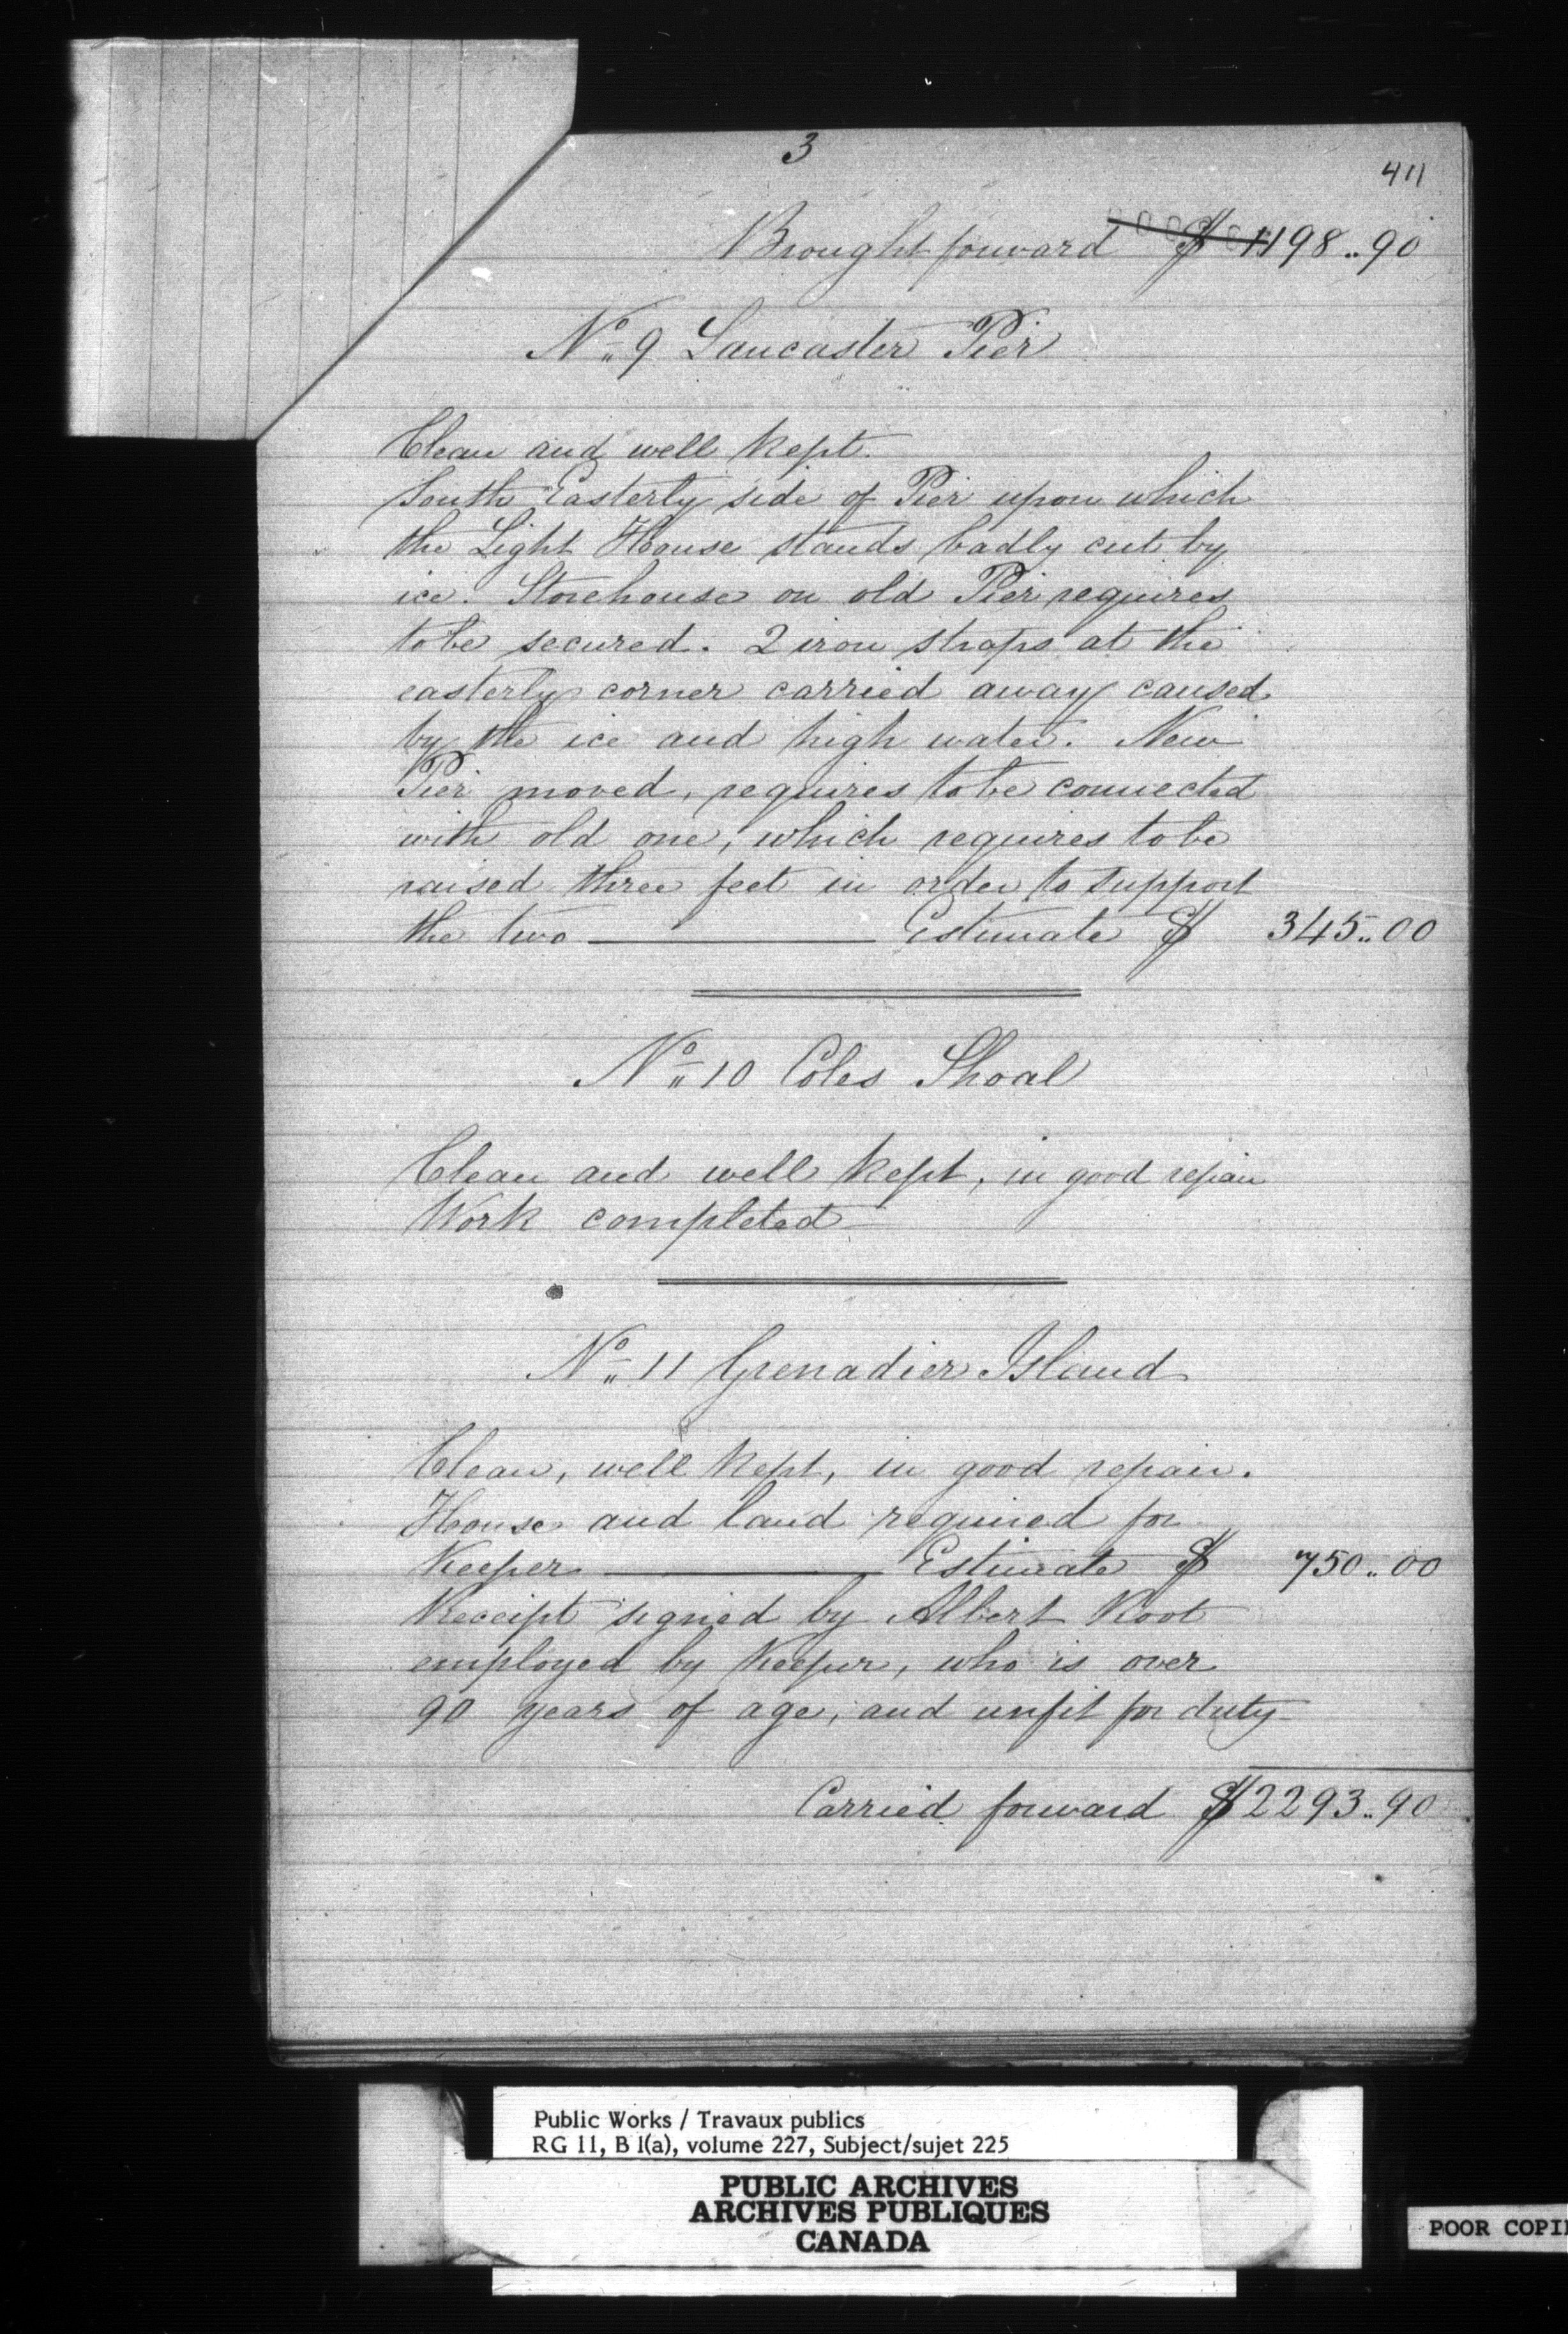 3
411
Brought forward $ 1198..90
No. 9 Lancaster Pier
Clean and well kept.
South Easterly side of Pier upon which
the Light House stands badly cut by
ice. Storehouse on old Pier requires
to be secured. 2 iron straps at the
easterly corner carried away caused
by the ice and high water. New
Pier moved, requires to be connected
with old one, which requires to be
raised three feet in order to support
the two ——— Estimate $ 345..00
No. 10 Coles Shoal
Clean and well kept, in good repair
Work completed
No. 11 Grenadier Island
Clean, well kept, in good repair.
House and land required for
Keeper ——— Estimate $ 750..00
Receipt signed by Albert Root
employed by Keeper, who is over
90 years of age, and unfit for duty
Carried forward $2293..90
Public Works / Travaux publics
RG 11, B 1(a), volume 227, Subject/sujet 225
PUBLIC ARCHIVES
ARCHIVES PUBLIQUES
CANADA
POOR COPI